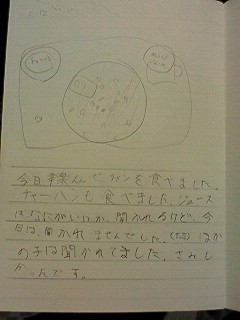 今日幸楽えんでラーメンを食べました。
チャーハンも食べました。ジュース
はなにがいいか、聞かれるけど、今
日は、聞かれませんでした。ほか
の子は聞かれてました。さみし
かったんです。